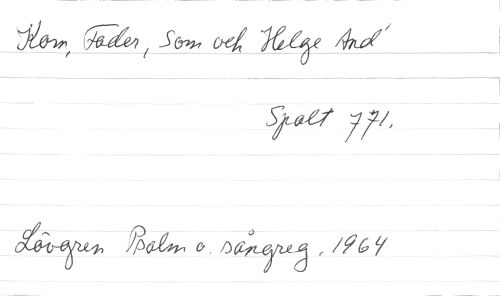 Kom, Fader, Son och Helge And
Spalt 771.
Lövgren Psalm o. sångreg. 1964